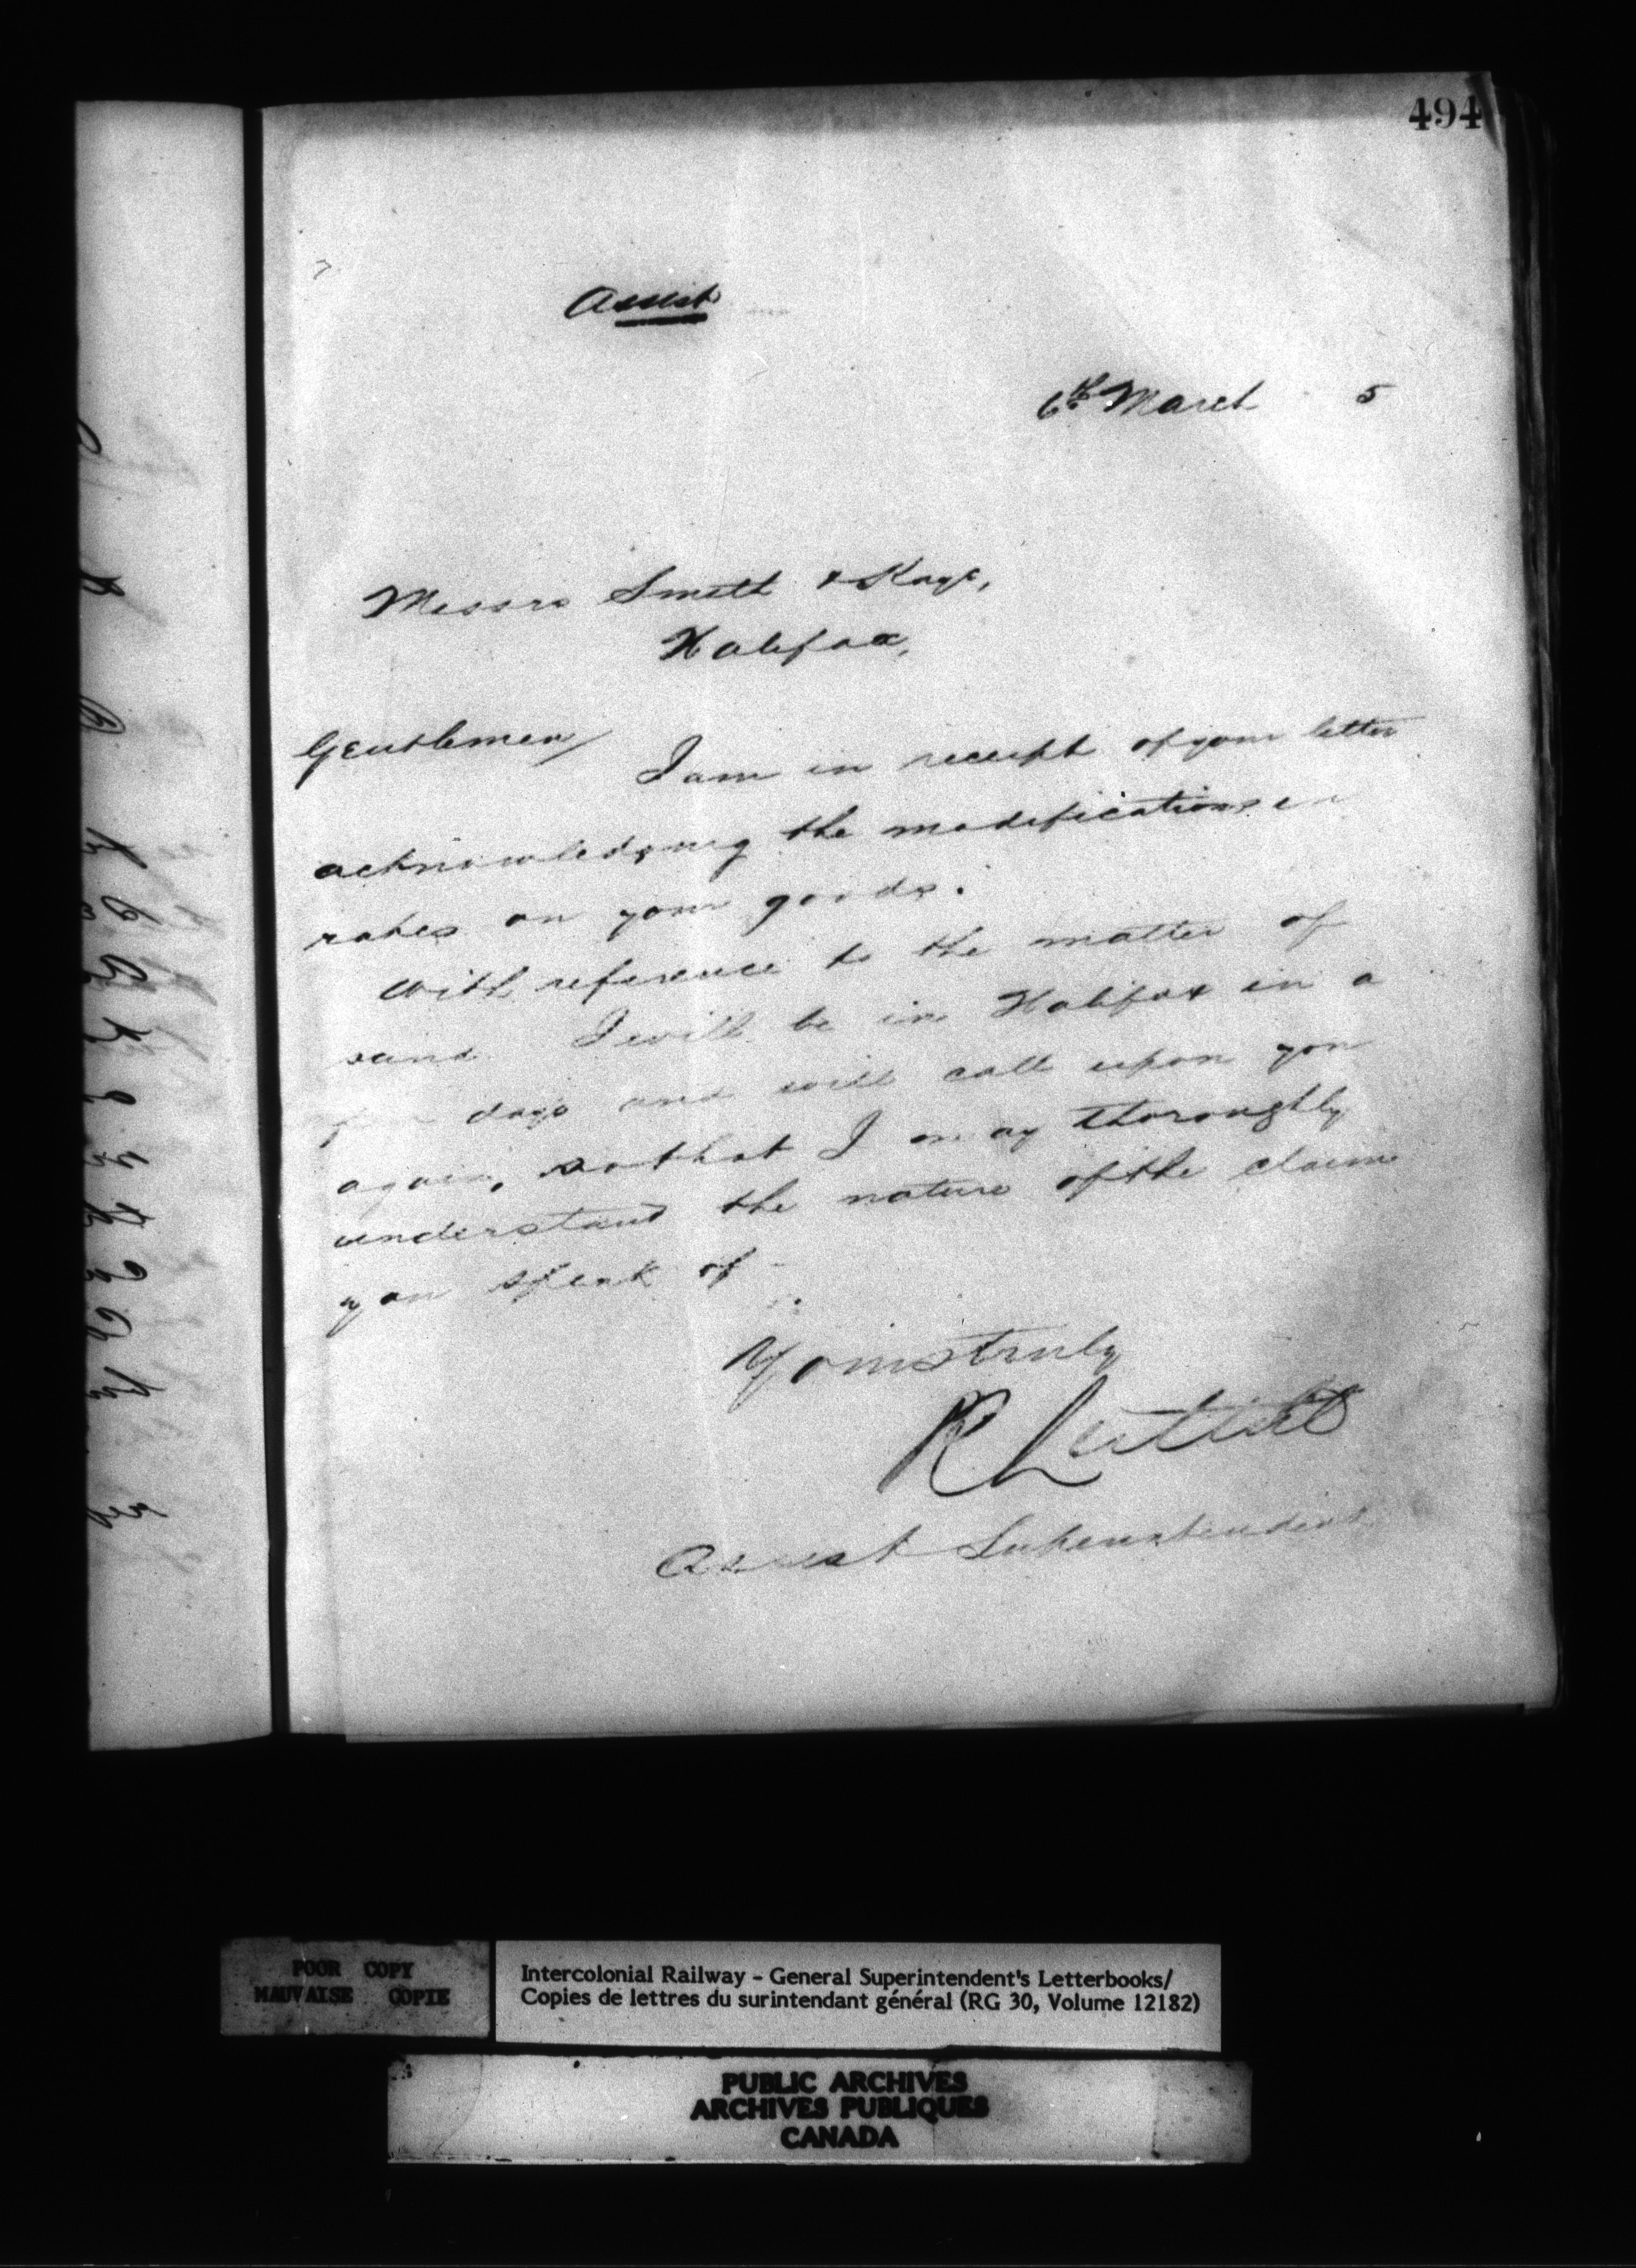 494
Assist
6th March 5
Messrs Smith & Kaye,
Halifax,
Gentlemen/
I am in receipt of your letter
acknowledging the modifications in
rates on your goods.
With reference to the matter of
sand I will be in Halifax in a
few days and will call upon you
again, so that I may thoroughly
understand the nature of the claim
you speak of -
Yours truly
R Luttrell
Assist Superintendent
POOR COPY
MAUVAISE COPIE
Intercolonial Railway - General Superintendent's Letterbooks/
Copies de lettres du surintendant général (RG 30, Volume 12182)
PUBLIC ARCHIVES
ARCHIVES PUBLIQUES
CANADA